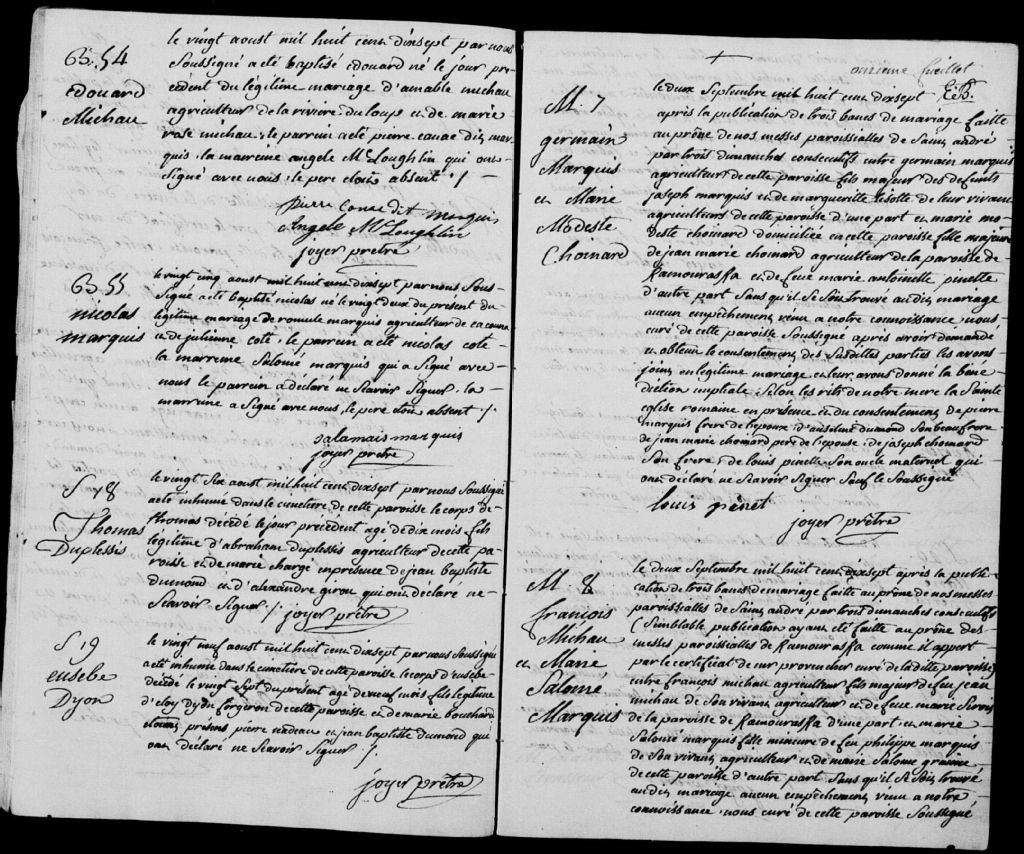 B. 54
édouard
Michau
le vingt aoust mil huit cens dixsept par nous
Soussigné a été baptisé édouard né le jour pre-
cédent du légitime mariage d'amable michau
agriculteur de la riviere du loup et de marie
rose michau : le parrein a été pierre canac dit mar
quis : la marreine angele McLoughlin qui ont
Signé avec nous : le pere étoit absent ./.
pierre Canac dit marquis
Angele McLoughlin
joyer prêtre
B. 55
nicolas
marquis
le vingt cinq aoust mil huit cens dixsept par nous Sous-
Signé a été baptisé nicolas né le vingt deux du présent du
légitime mariage de romule marquis agriculteur de cacouna
et de julienne coté : le parrein a été nicolas coté
la marreine Salomé marquis qui a Signé avec
nous le parrein a déclaré ne Scavoir Signer : la
marreine a Signé avec nous, le pere étoit absent ./.
salamais marquis
joyer prêtre
S 18
Thomas
Duplessis
le vingt Six aoust mil huit cens dixsept par nous Soussigné
a été inhumé dans le cimetière de cette paroisse le corps de
thomas décédé le jour précédent agé de dix mois fils
légitime d'abraham duplessis agriculteur de cette pa
roisse et de marie chargé en présence de jean baptiste
dumond et d'alexandre girou qui ont déclaré ne
Scavoir Signer ./. joyer prêtre
S 19
eusebe
Dyon
le vingt neuf aoust mil huit cens dixsept par nous Soussigné
a été inhumé dans le cimetière de cette paroisse le corps d'eusebe
décédé le vingt Sept du présent agé de neuf mois fils légitime
d'éloy dyon forgeron de cette paroisse et de marie bouchard
étoient présens piérre nadeau et jean baptiste dumond qui
ont déclaré ne Scavoir Signer ./.
joyer prêtre
onzieme feuillet
M. 7
germain
Marquis
et Marie
Modeste
Chomard
le deux Septembre mil huit cens dixsept
après la publication de trois bancs de mariage faitte
au prône de nos messes paroissialles de Saint andré
par trois dimanches consecutifs entre germain marquis
agriculteur de cette paroisse fils majeur des defunts
joseph marquis et de marguerite lisotte de leur vivant
agriculteurs de cette paroisse d'une part et marie mo-
deste chomard domiciliée en cette paroisse fille majeure
de jean marie chomard agriculteur de la paroisse de
Kamouraska et de feue marie antoinette pinette
d'autre part Sans qu'il se Soit trouvé audit mariage
aucun empêchement venu a notre connoissance : nous
curé de cette paroisse Soussigné après avoir demandé
et obtenu le consentement des Susdittes parties les avons
joint en légitime mariage et leur avons donné la béné-
diction nuptiale : Selon les rits de notre mere la Sainte
église romaine en présence et du consentement de pierre
marquis frere de l'epoux : d'anselme dumond Son beaufrere
de jean marie chomard pere de l'epouse : de joseph chomard
Son frere : de louis pinette Son oncle maternel qui
ont déclaré ne Scavoir Signer Sauf le Soussigné
louis pênet
joyer prêtre
M. 8
françois
Michau
et Marie
Salomé
Marquis
le deux Septembre mil huit cens dixsept après la public-
cation de trois bancs de mariage faite au prône de nos messes
paroissialles de Saint andré par trois dimanches consecutifs
( Semblable publication ayant été faitte au prône des
messes paroissialles de Kamouraska comme il appert
par le certificat de mr provencher curé de la ditte paroisse)
entre françois michau agriculteur fils majeur de feu jean
michau de Son vivant agriculteur et de feue marie
de la paroisse de Kamouraska d'une part et marie
Salomé marquis fille mineure de feu philippe marquis
de Son vivant agriculteur et de marie Salomé
de cette paroisse d'autre part Sans qu'il Se Soit trouvé
audit mariage aucun empêchement venu a notre
connoissance : nous curé de cette paroisse Soussigné